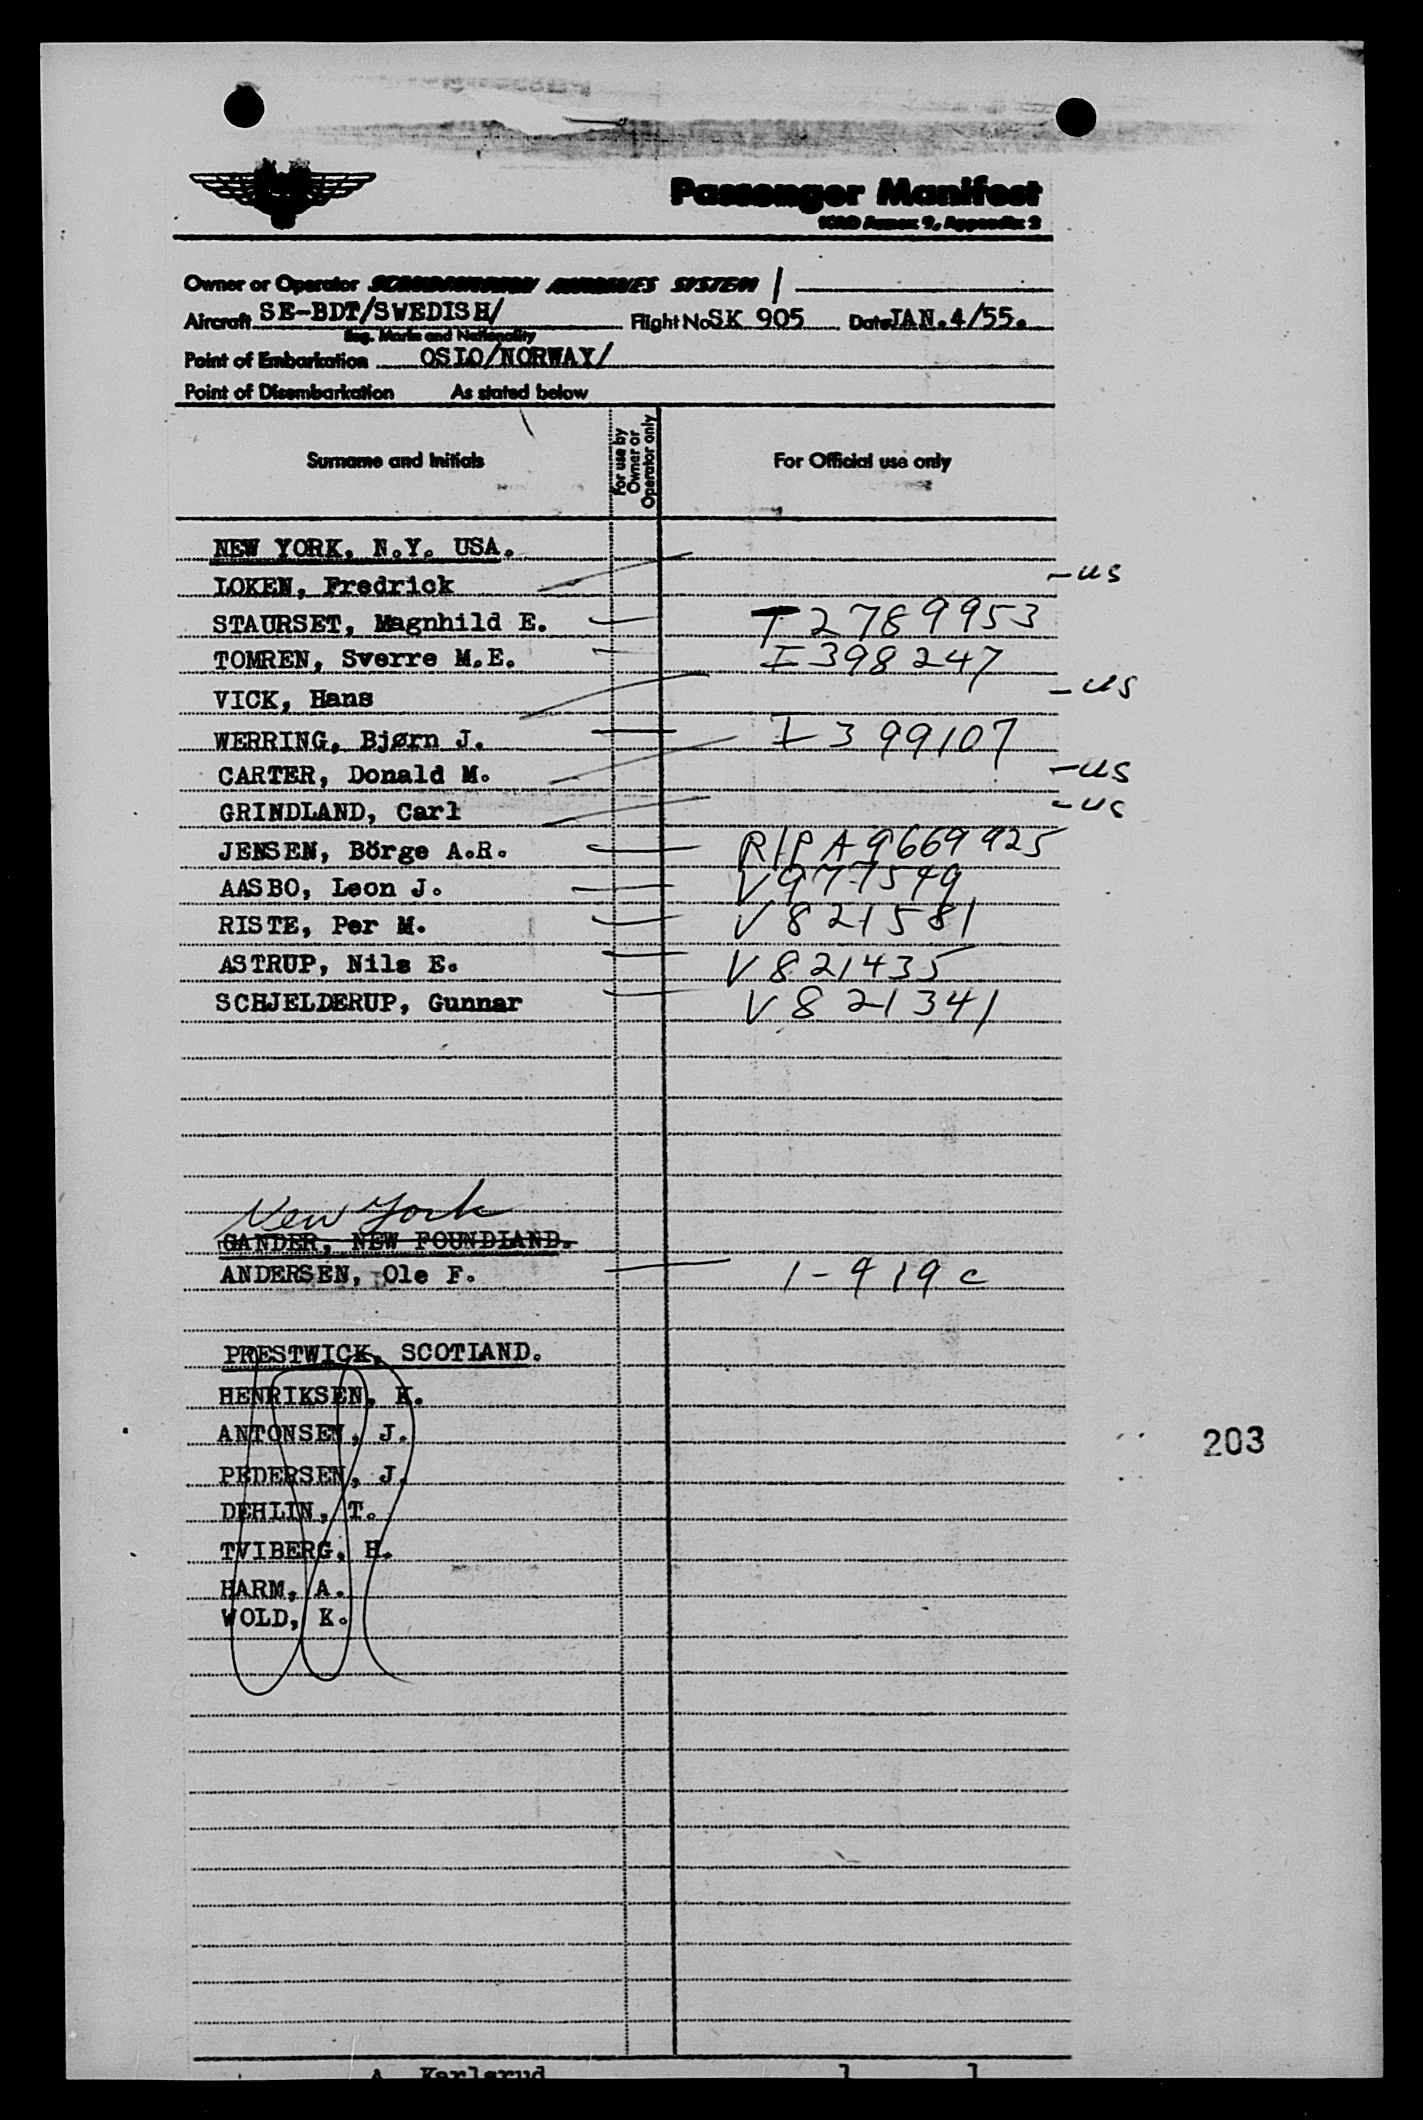 Passenger Manifest
ICAO Annex 9, Appendix 2
Owner or Operator SCANDINAVIAN AIRLINES SYSTEM /
Aircraft SE-BDT/SWEDISH/ Flight No SK 905 Date JAN.4/55.
Reg. Marks and Nationality
Point of Embarkation OSLO/NORWAY/
Point of Disembarkation As stated below
Surname and Initials For use by Owner or Operator only For Official use only
NEW YORK, N.Y. USA.
LOKEN, Fredrick - US
STAURSET, Magnhild E. T 2789953
TOMREN, Sverre M.E. I 398247
VICK, Hans - US
WERRING, Bjørn J. I 399107
CARTER, Donald M. - US
GRINDLAND, Carl - US
JENSEN, Börge A.R. R/P A9669925
AASBO, Leon J. V 977549
RISTE, Per M. V 821581
ASTRUP, Nils E. V 821435
SCHJELDERUP, Gunnar V 821341
New York
GANDER, NEW FOUNDLAND.
ANDERSEN, Ole F. 1-919c
PRESTWICK, SCOTLAND.
HENRIKSEN, K.
ANTONSEN, J.
PEDERSEN, J.
DEHLIN, T.
TVIBERG, H.
HARM, A.
WOLD, K.
203
A. Karlsrud